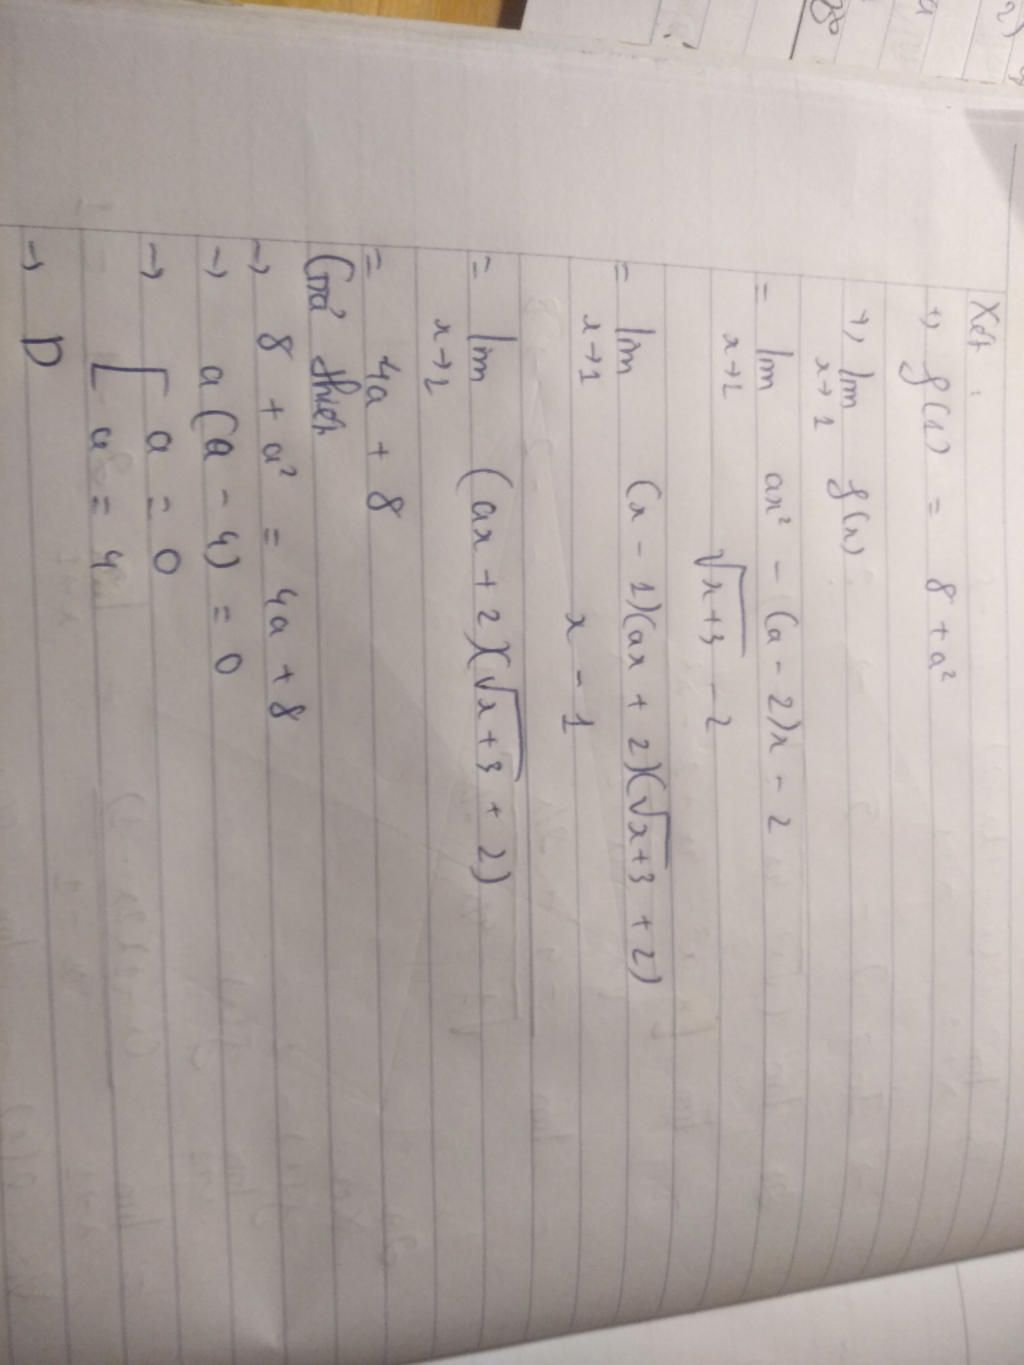 Xét :
+) f(1) = 8 + a²
+) lim f(x)
x→1
= lim ax² - (a - 2)x - 2
x→1 √x+3 - 2
= lim (x - 1)(ax + 2)(√x+3 + 2)
x→1 x - 1
= lim (ax + 2)(√x+3 + 2)
x→1
= 4a + 8
Giả thiết
→ 8 + a² = 4a + 8
→ a(a - 4) = 0
→ [ a = 0
a = 4
→ D